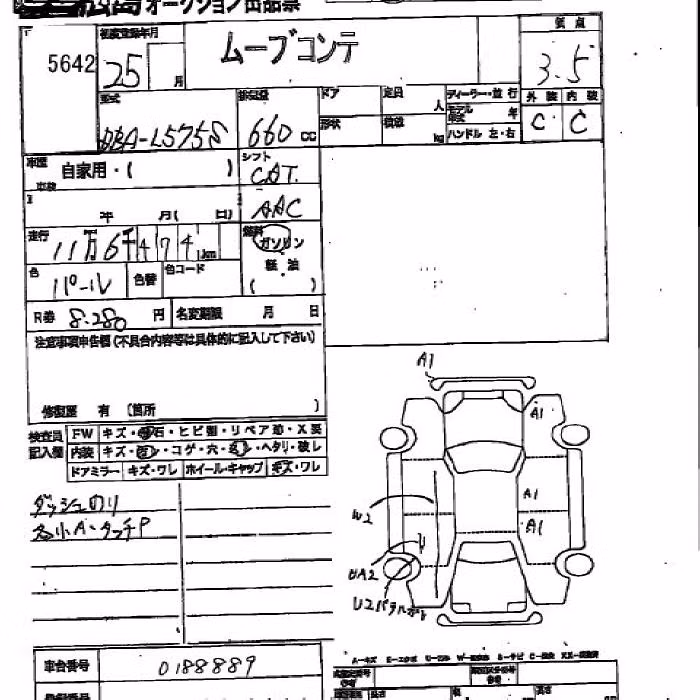 オークション出品票
5642
初度登録年月
25 月
ムーブコンテ
評点
3.5
型式
DBA-L575S
排気量
660 cc
ドア
定員 人
ディーラー・並行
モデル年式 年
形状
積載 kg
ハンドル 左・右
外装 内装
C C
車歴 自家用・( )
シフト
CAT
車検
年 月( 日)
AAC
走行
11万6千474km
燃料
ガソリン
軽油
( )
色
パール
色替
色コード
R券 8.280 円
名変期限 月 日
注意事項申告欄(不具合内容等は具体的に記入して下さい)
修復歴 有 〔箇所 〕
検査員
記入欄
FW キズ・飛石・ヒビ割・リペア跡・X要
内装 キズ・・コゲ・穴・・ヘタリ・破レ
ドアミラー キズ・ワレ ホイール・キャップ キズ・ワレ
ダッシュのり
各小A・タッチP
A1
A1
A1
A1
W2
UA2
U2パネル
車台番号
0188889